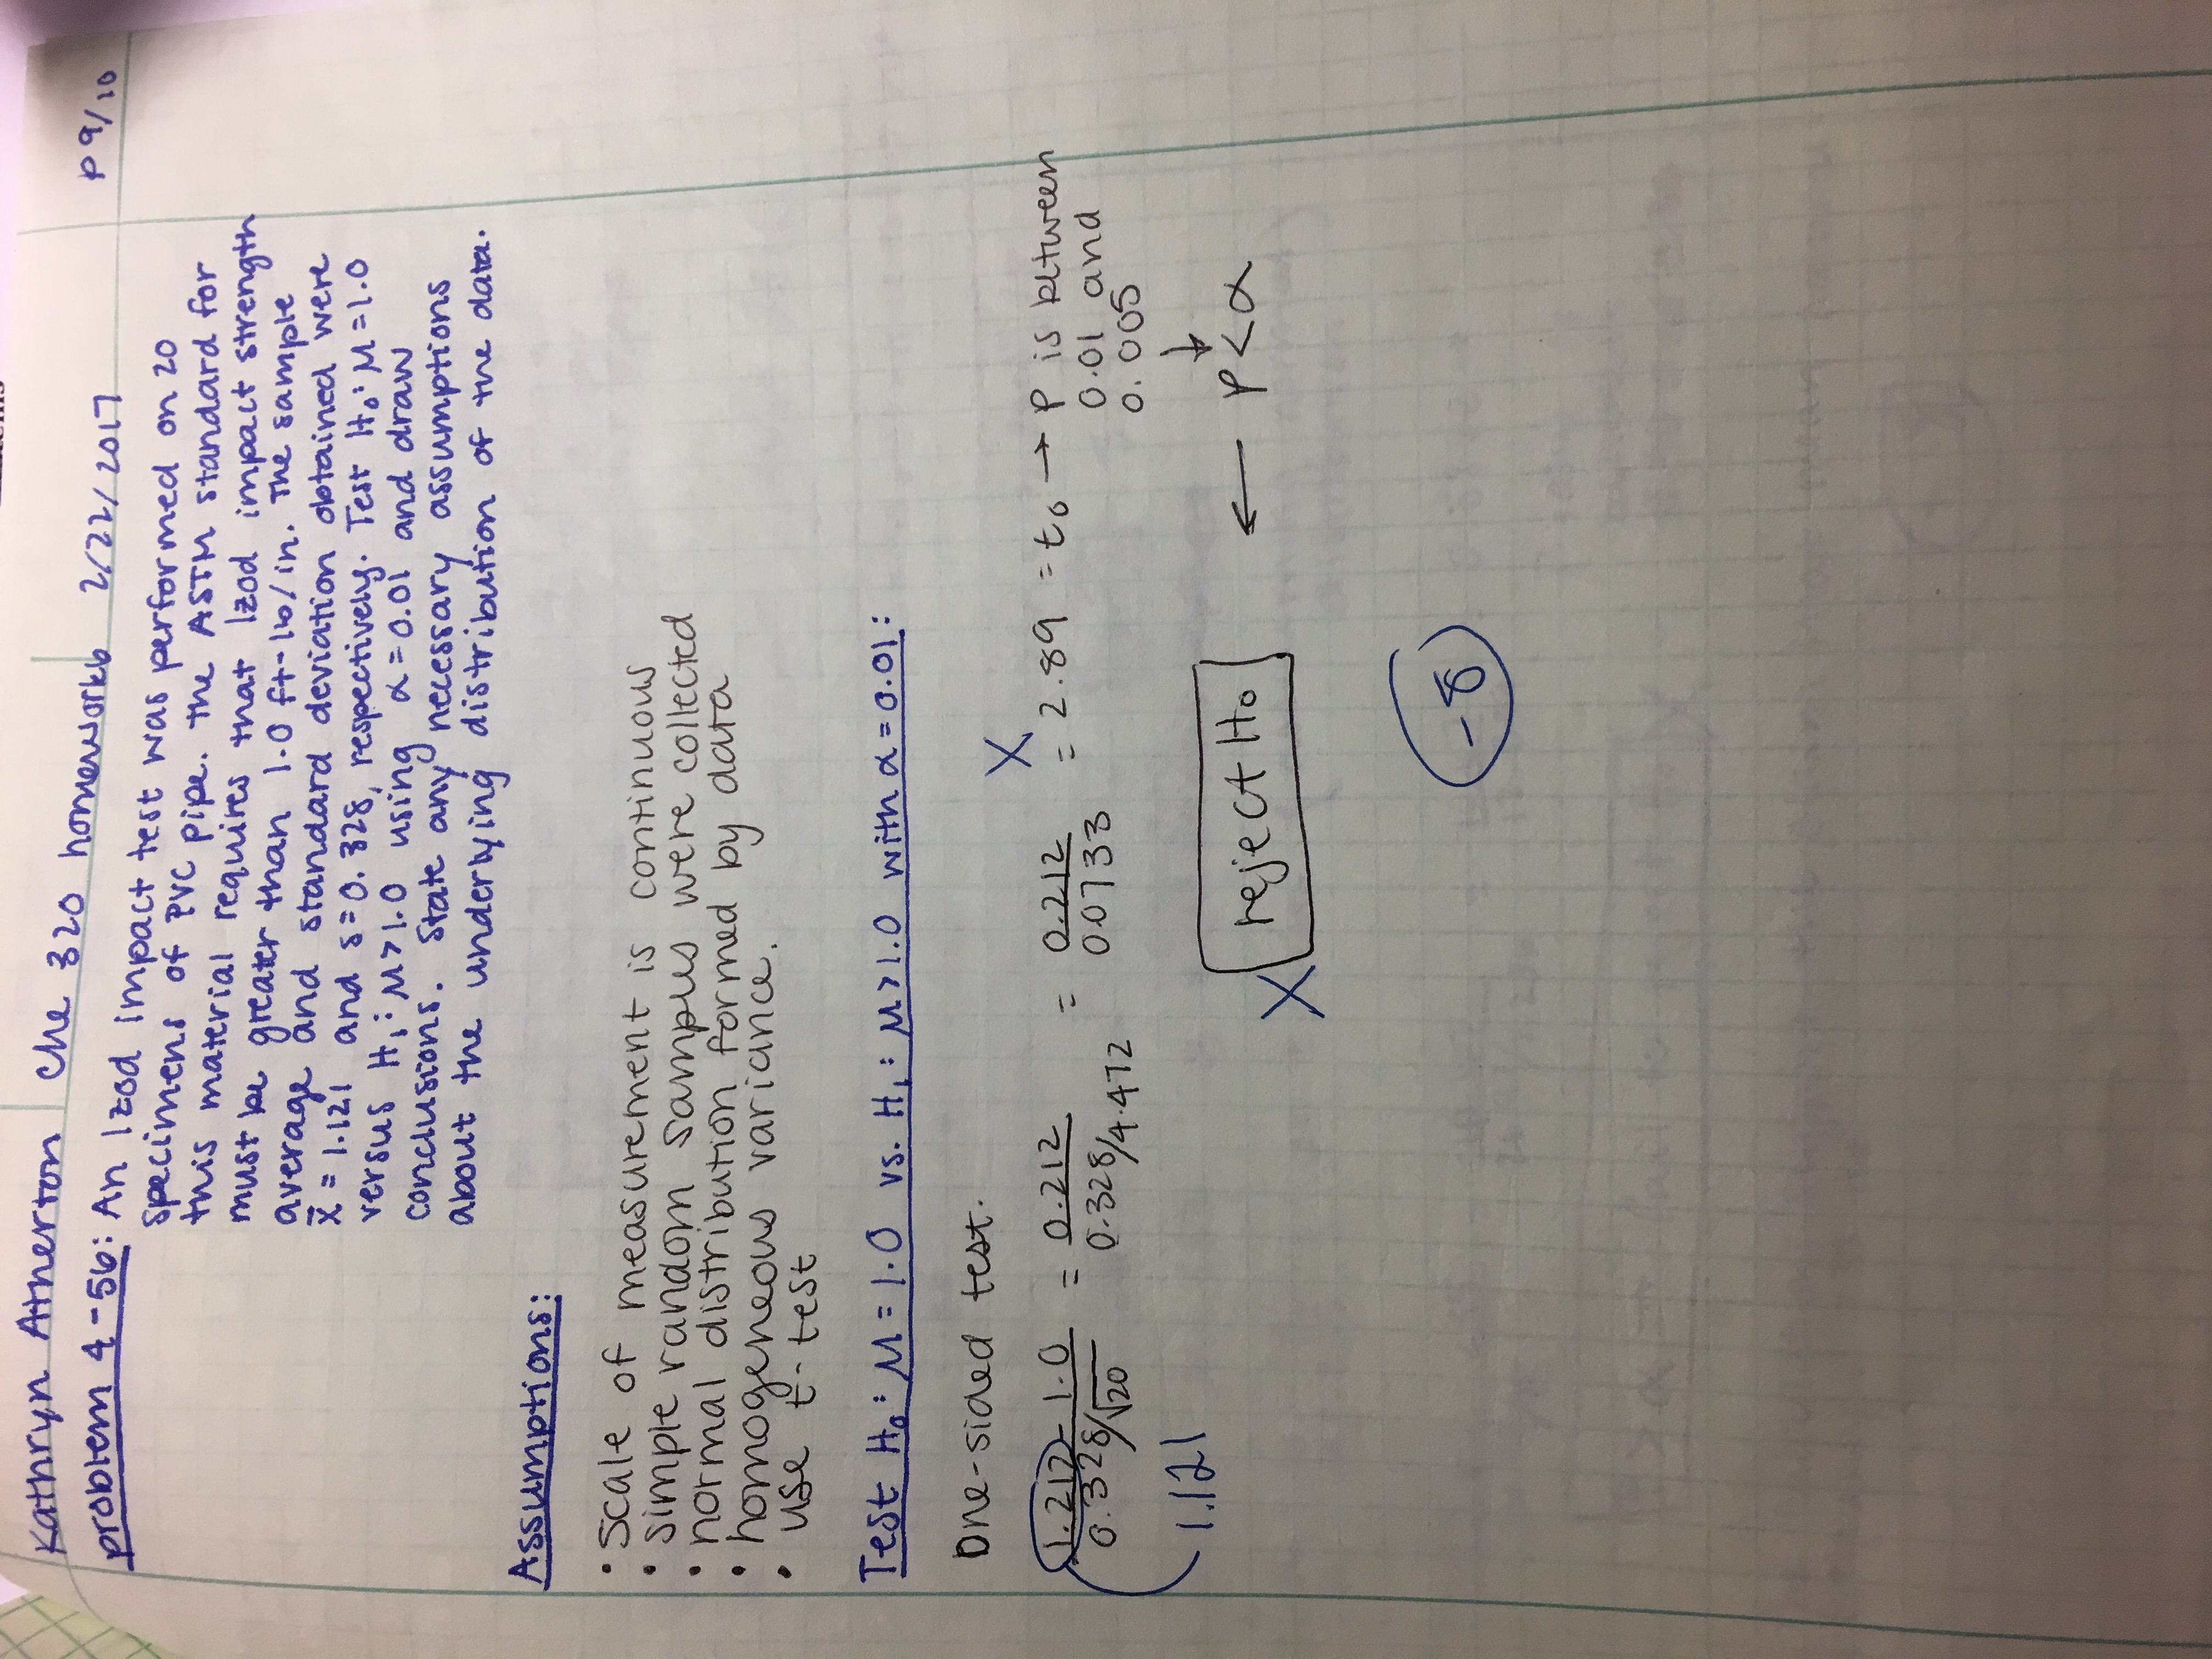 Kathryn Atherton Che 320 homework 6 2/22/2017 p 9/10
problem 4-56: An Izod impact test was performed on 20
specimens of PVC pipe. The ASTM standard for
this material requires that Izod impact strength
must be greater than 1.0 ft-lb/in. The sample
average and standard deviation obtained were
x̄ = 1.121 and s=0.328, respectively. Test H₀: μ=1.0
versus H₁: μ>1.0 using α=0.01 and draw
conclusions. State any necessary assumptions
about the underlying distribution of the data.
Assumptions:
• scale of measurement is continuous
• simple random samples were collected
• normal distribution formed by data
• homogeneous variance.
• use t-test
Test H₀: μ=1.0 vs. H₁: μ>1.0 with α=0.01:
One-sided test.
X
1.212-1.0 / 0.328/√20 = 0.212 / 0.328/4.472 = 0.212 / 0.0733 = 2.89 = t₀ → P is between
0.01 and
0.005
1.121
↓
X reject H₀ ← P<α
-8